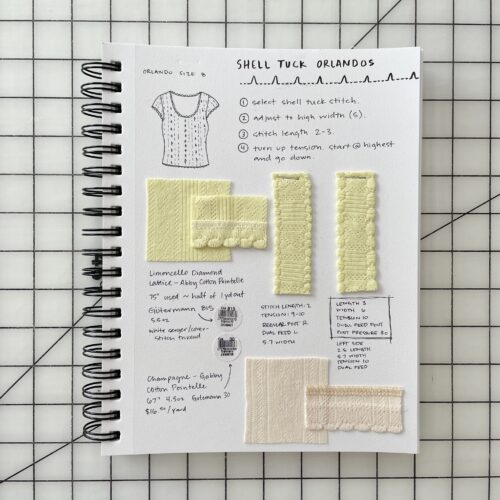 ORLANDO SIZE 8
SHELL TUCK ORLANDOS
① select shell tuck stitch.
② adjust to high width (5).
③ stitch length 2-3.
④ turn up tension. start @ highest
and go down.
Limoncello Diamond
Lattice - Abby Cotton Pointelle
75" used ~ half of 1 yd cut
Gütermann 815
5.5oz
white serger/cover-
stitch thread
STITCH LENGTH: 2
TENSION: 9-10
REGULAR FOOT R
DUAL FEED L
5.7 WIDTH
LENGTH 3
WIDTH 6
TENSION 10
DUAL FEED FOOT
FOOT PRESSURE 80
LEFT SIDE
2.5 LENGTH
5.7 WIDTH
TENSION 10
DUAL FEED
Champagne - Gabby
Cotton Pointelle
67" 4.5oz Gutermann 30
$16.50/yard